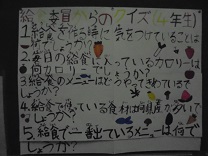 給食委員からのクイズ(4年生)
1.給食を作る時に気をつけていることは
何でしょうか?
2.毎日の給食に入っているカロリーは
何カロリーでしょうか?
3.給食のメニューはどうやってきめているで
しょうか?
4.給食で使っている食材は何県産が多いで
しょうか?
5.給食で一番出ているメニューは何で
しょうか?